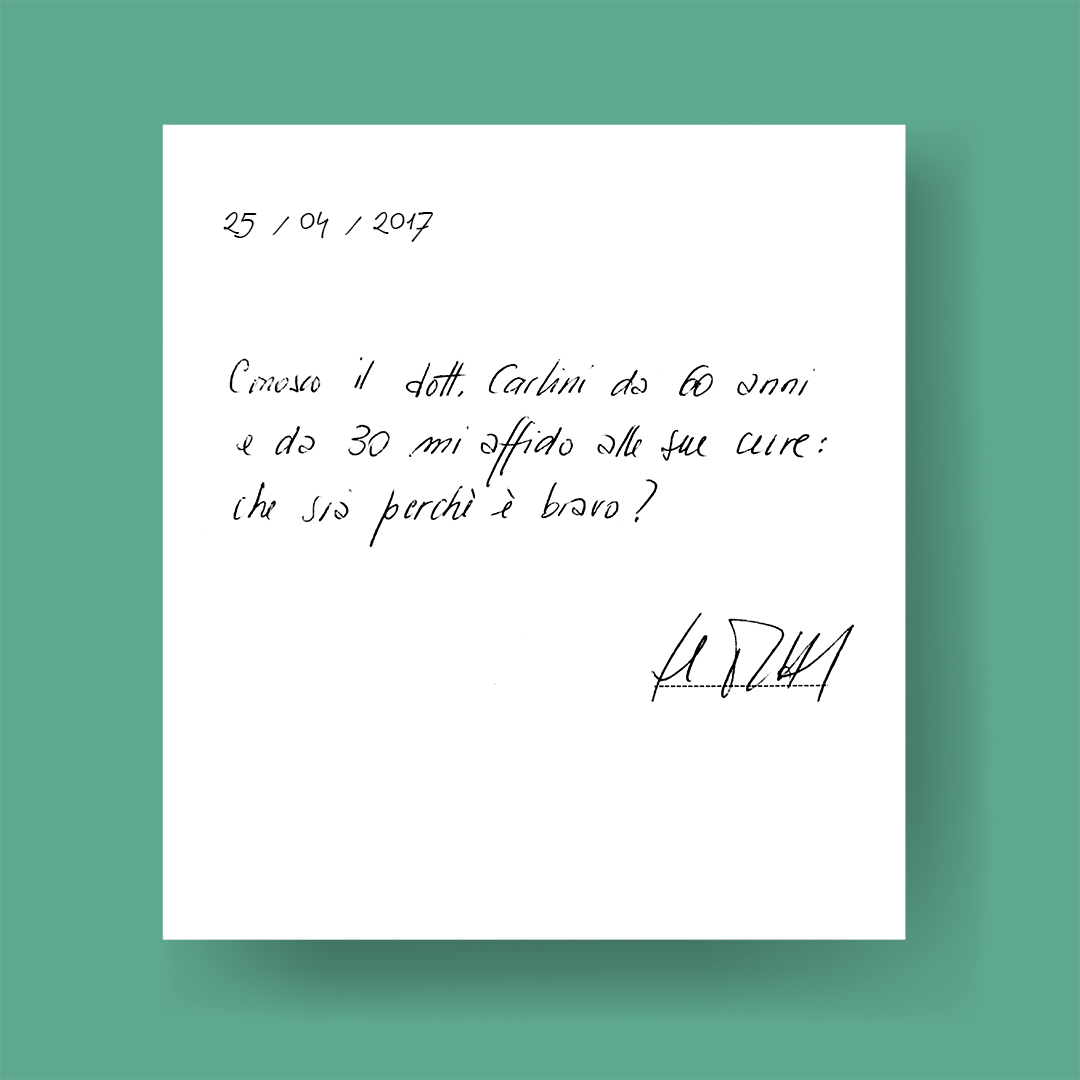 25 / 04 / 2017
Conosco il dott. Carlini da 60 anni
e da 30 mi affido alle sue cure:
che sia perchè è bravo?